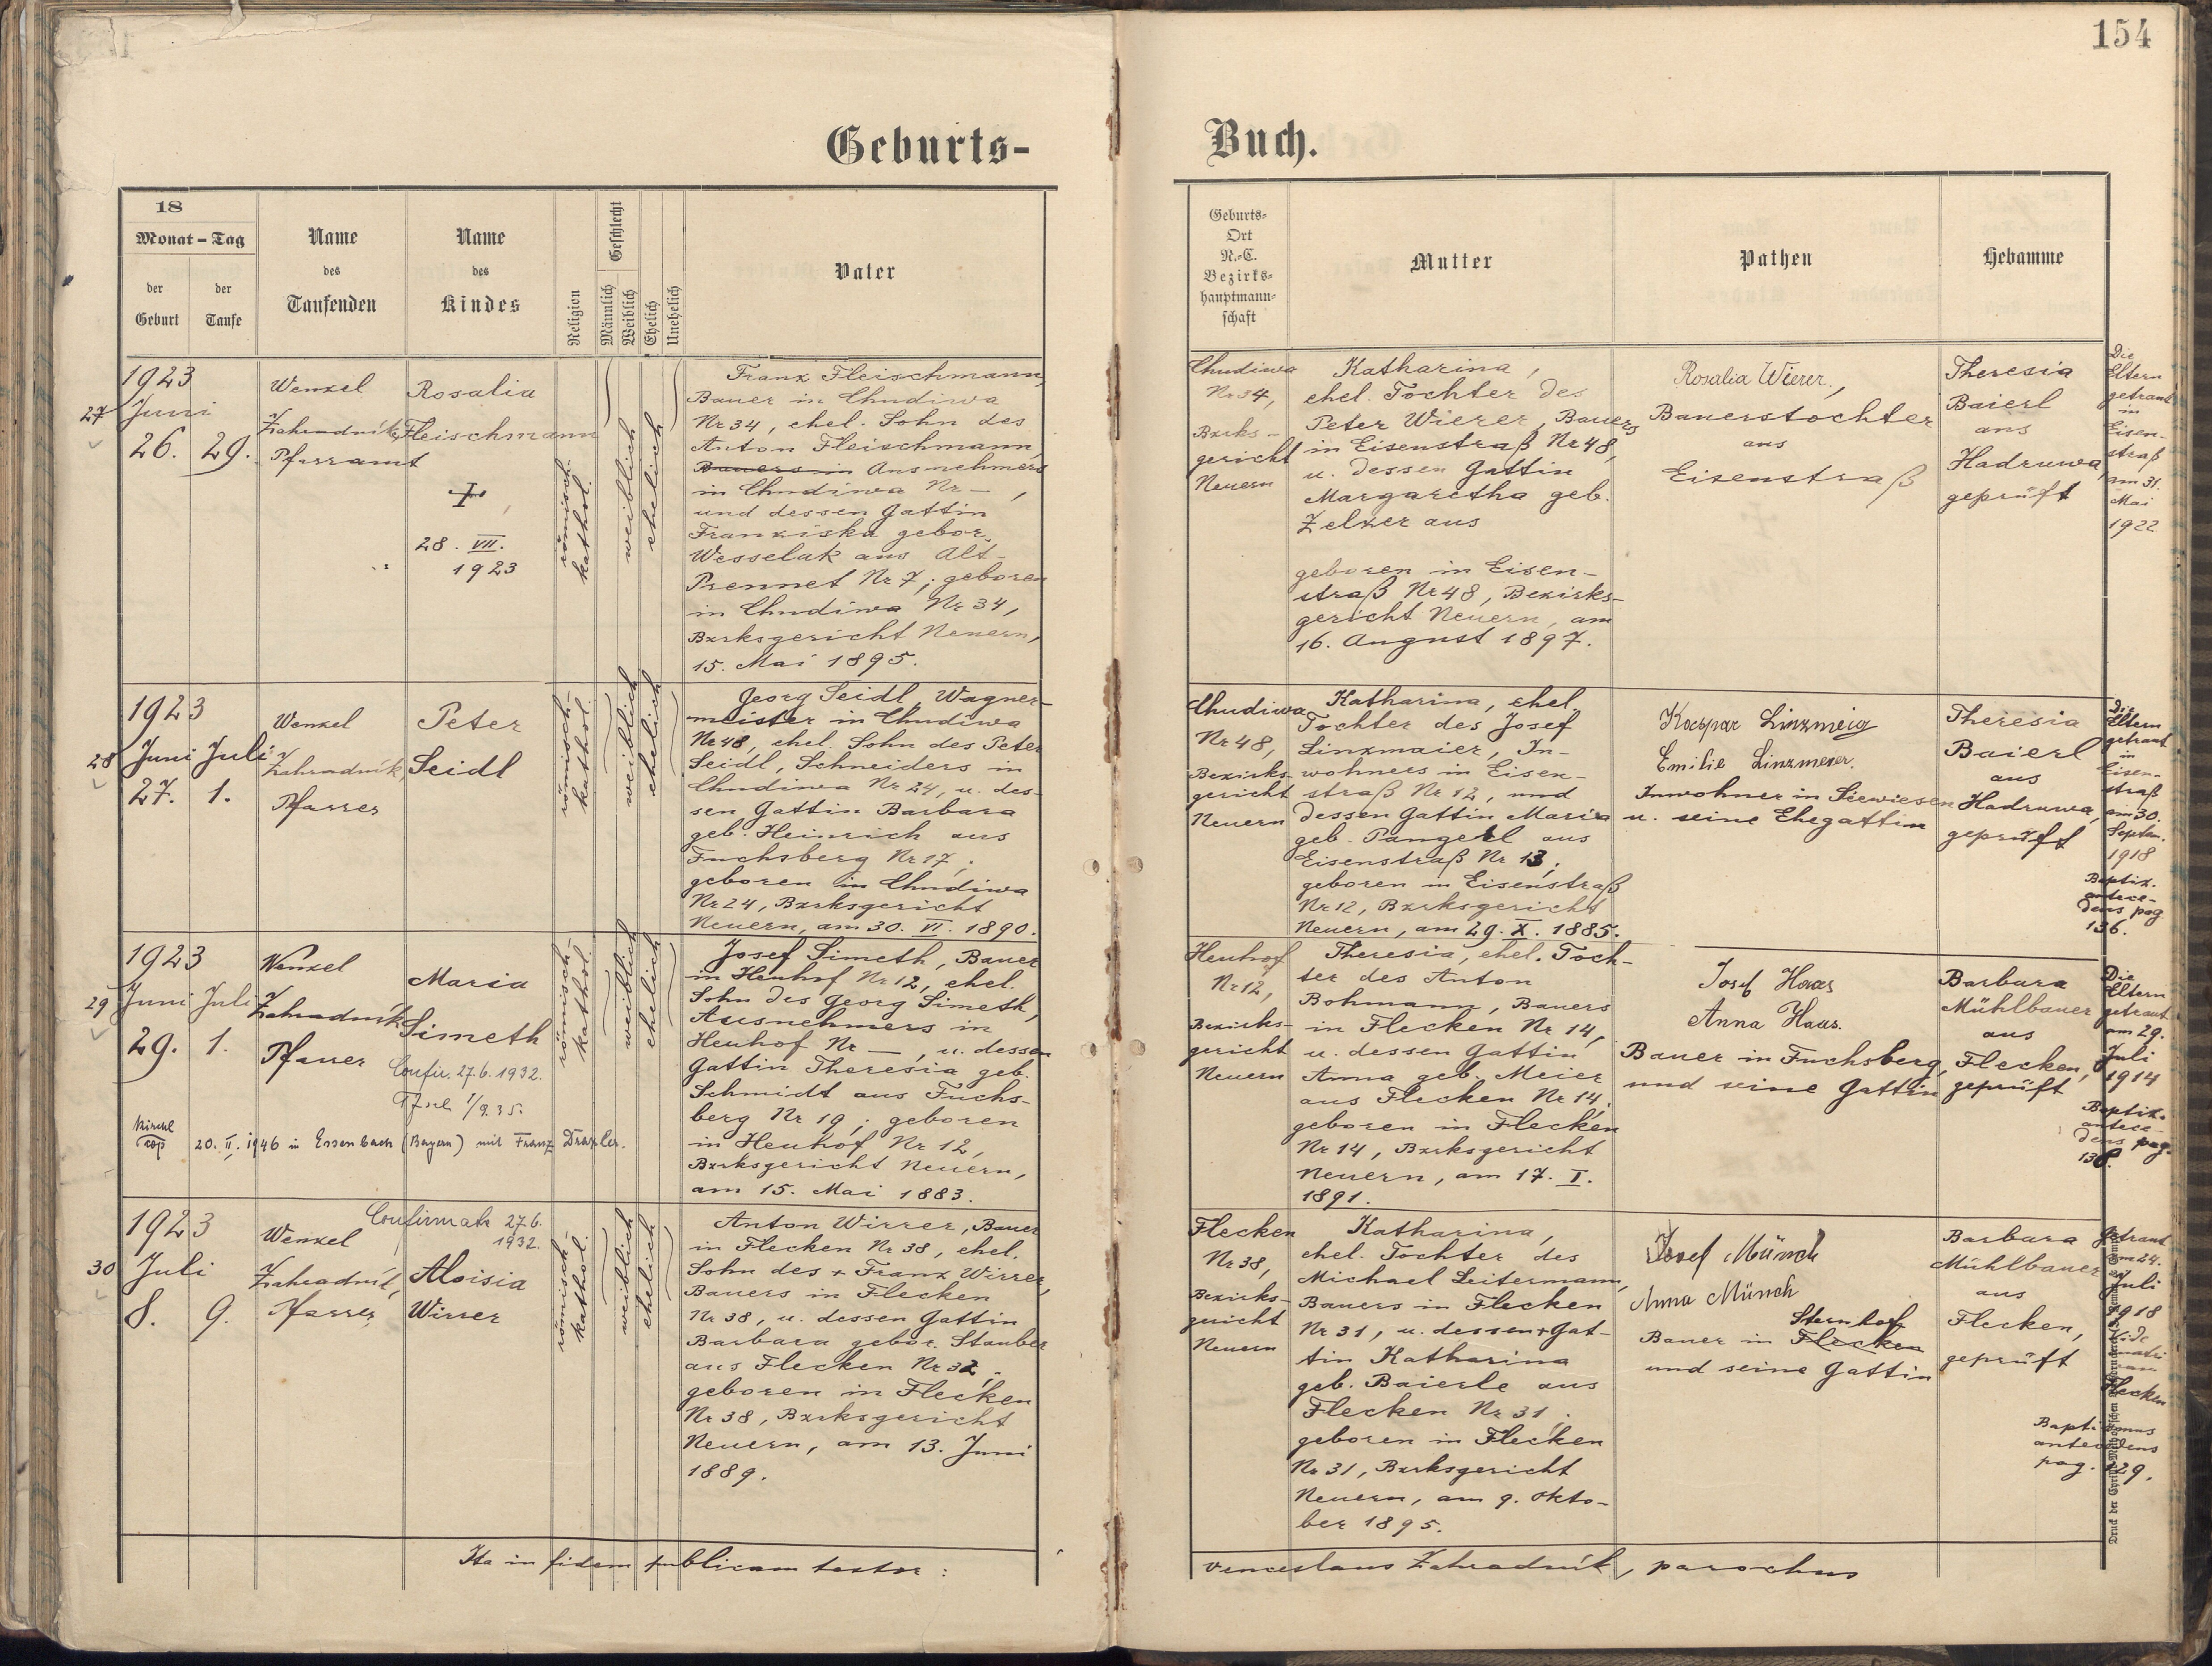 154
Geburts-
Buch.
18
Monat - Tag
der Geburt
der Taufe
Name des Taufenden
Name des Kindes
Religion
Geschlecht
Männlich
Weiblich
Ehelich
Unehelich
Vater
Geburts-
Ort
N.-C.
Bezirks-
hauptmann-
schaft
Mutter
Pathen
Hebamme
27
1923
Juni
26. 29.
Wenzel
Zahradník,
Pfarramt
Rosalia
Fleischmann
28. VII.
1923
römisch-
kathol.
weiblich
ehelich
Franz Fleischmann,
Bauer in Chudiwa
Nr 34, ehel. Sohn des
Anton Fleischmann,
Bauers in Ausnehmers
in Chudiwa Nr —,
und dessen Gattin
Franziska gebor.
Wesselak aus Alt-
Prennet Nr 7; geboren
in Chudiwa Nr 34,
Bzrksgericht Neuern,
15. Mai 1895.
Chudiwa
Nr 34,
Bzrks-
gericht
Neuern
Katharina,
ehel. Tochter des
Peter Wierer, Bauers
in Eisenstraß Nr 48,
u. dessen Gattin
Margaretha geb.
Zelzer aus
geboren in Eisen-
straß Nr 48, Bezirks-
gericht Neuern, am
16. August 1897.
Rosalia Wierer,
Bauerstochter
aus
Eisenstraß
Theresia
Baierl
aus
Hadruwa,
geprüft
Die
Eltern
getraut
in
Eisen-
straß
am 31.
Mai
1922
28
1923
Juni Juli
27. 1.
Wenzel
Zahradník,
Pfarrer
Peter
Seidl
römisch-
kathol.
weiblich
ehelich
Georg Seidl, Wagner-
meister in Chudiwa
Nr 48, ehel. Sohn des Peter
Seidl, Schneiders in
Chudiwa Nr 24, u. des-
sen Gattin Barbara
geb. Heinrich aus
Fuchsberg Nr 17;
geboren in Chudiwa
Nr 24, Bzrksgericht
Neuern, am 30. VI. 1890.
Chudiwa
Nr 48,
Bezirks-
gericht
Neuern
Katharina, ehel.
Tochter des Josef
Linzmaier, In-
wohners in Eisen-
straß Nr 12, und
dessen Gattin Maria
geb. Pangerl aus
Eisenstraß Nr 13;
geboren in Eisenstraß
Nr 12, Bzrksgericht
Neuern, am 29. X. 1885.
Kaspar
Emilie Linzmeier.
Inwohner in Seewiesen
u. seine Ehegattin
Theresia
Baierl
aus
Hadruwa,
geprüft
Die
Eltern
getraut
in
Eisen-
straß
am 30.
Septem.
1918
Baptiz.
antece-
dens pag
136.
29
1923
Juni Juli
29. 1.
Wenzel
Zahradník
Pfarrer
Maria
Simeth
Confir. 27.6.1932.
1/9.35.
römisch-
kathol.
weiblich
ehelich
Josef Simeth, Bauer
in Heuhof Nr 12, ehel.
Sohn des Georg Simeth,
Ausnehmers in
Heuhof Nr —, u. dessen
Gattin Theresia geb.
Schmidt aus Fuchs-
berg Nr 19; geboren
in Heuhof Nr 12,
Bzrksgericht Neuern,
am 15. Mai 1883.
kirchl
cop 20. II. 1946 in Essenbach (Bayern) mit Franz Draxler.
Heuhof
Nr 12,
Bezirks-
gericht
Neuern
Theresia, ehel. Toch-
ter des Anton
Bohmann, Bauers
in Flecken Nr 14,
u. dessen Gattin
Anna geb. Meier
aus Flecken Nr 14;
geboren in Flecken
Nr 14, Bzrksgericht
Neuern, am 17. I.
1891.
Josef Haas
Anna Haas.
Bauer in Fuchsberg,
und seine Gattin
Barbara
Mühlbauer
aus
Flecken,
geprüft
Die
Eltern
getraut
am 29.
Juli
1914
Baptiz.
antece-
dens pag.
30
1923
Juli
8. 9.
Wenzel
Zahradník,
Pfarrer
Confirmata 27.6.
1932.
Aloisia
Wirrer
römisch-
kathol.
weiblich
ehelich
Anton Wirrer, Bauer
in Flecken Nr 38, ehel.
Sohn des + Franz Wirrer,
Bauers in Flecken
Nr 38, u. dessen Gattin
Barbara gebor. Stauber
aus Flecken Nr 32;
geboren in Flecken
Nr 38, Bzrksgericht
Neuern, am 13. Juni
1889.
Flecken
Nr 38,
Bezirks-
gericht
Neuern
Katharina,
ehel. Tochter des
Michael Leitermann,
Bauers in Flecken
Nr 31, u. dessen + Gat-
tin Katharina
geb. Baierle aus
Flecken Nr 31;
geboren in Flecken
Nr 31, Bzrksgericht
Neuern, am 9. Okto-
ber 1895.
Josef Münch
Anna Münch
Sternhof
Bauer in Flecken
und seine Gattin
Barbara
Mühlbauer
aus
Flecken,
geprüft
Getraut
am 24.
Juli
1918
Vide
matri
Flecken
Baptismus
antecedens
pag. 129.
Ita in fidem publicam testor:
Venceslaus Zahradník, parochus